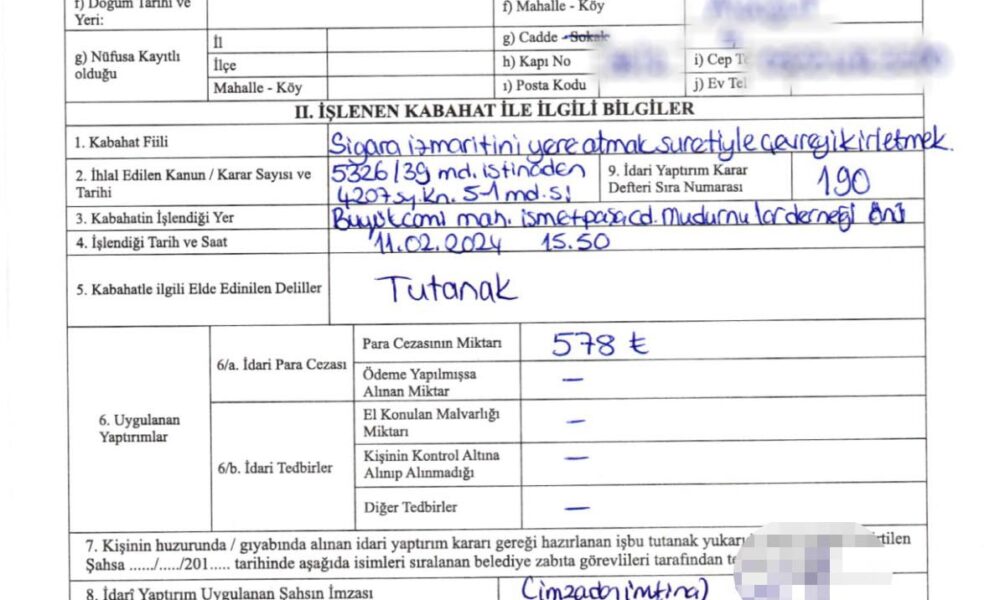 f) Doğum Tarihi ve Yeri:
f) Mahalle - Köy
g) Nüfusa Kayıtlı olduğu
İl
g) Cadde - Sokak
İlçe
h) Kapı No
i) Cep Te
Mahalle - Köy
ı) Posta Kodu
j) Ev Tel
II. İŞLENEN KABAHAT İLE İLGİLİ BİLGİLER
1. Kabahat Fiili
Sigara izmaritini yere atmak suretiyle çevreyi kirletmek.
2. İhlal Edilen Kanun / Karar Sayısı ve Tarihi
5326/39 md. istinaden
4207 sy. Kn. 5-1 md.si
9. İdari Yaptırım Karar Defteri Sıra Numarası
190
3. Kabahatin İşlendiği Yer
Büyükcami mah. ismetpaşa cd. Mudurnulor derneği önü
4. İşlendiği Tarih ve Saat
11.02.2024 15.50
5. Kabahatle ilgili Elde Edinilen Deliller
Tutanak
6. Uygulanan Yaptırımlar
6/a. İdari Para Cezası
Para Cezasının Miktarı
578 ₺
Ödeme Yapılmışsa Alınan Miktar
—
6/b. İdari Tedbirler
El Konulan Malvarlığı Miktarı
—
Kişinin Kontrol Altına Alınıp Alınmadığı
—
Diğer Tedbirler
—
7. Kişinin huzurunda / gıyabında alınan idari yaptırım kararı gereği hazırlanan işbu tutanak yukarı
Şahsa ....../...../201..... tarihinde aşağıda isimleri sıralanan belediye zabıta görevlileri tarafından
8. İdarî Yaptırım Uygulanan Şahsın İmzası
(imzadan imtina)